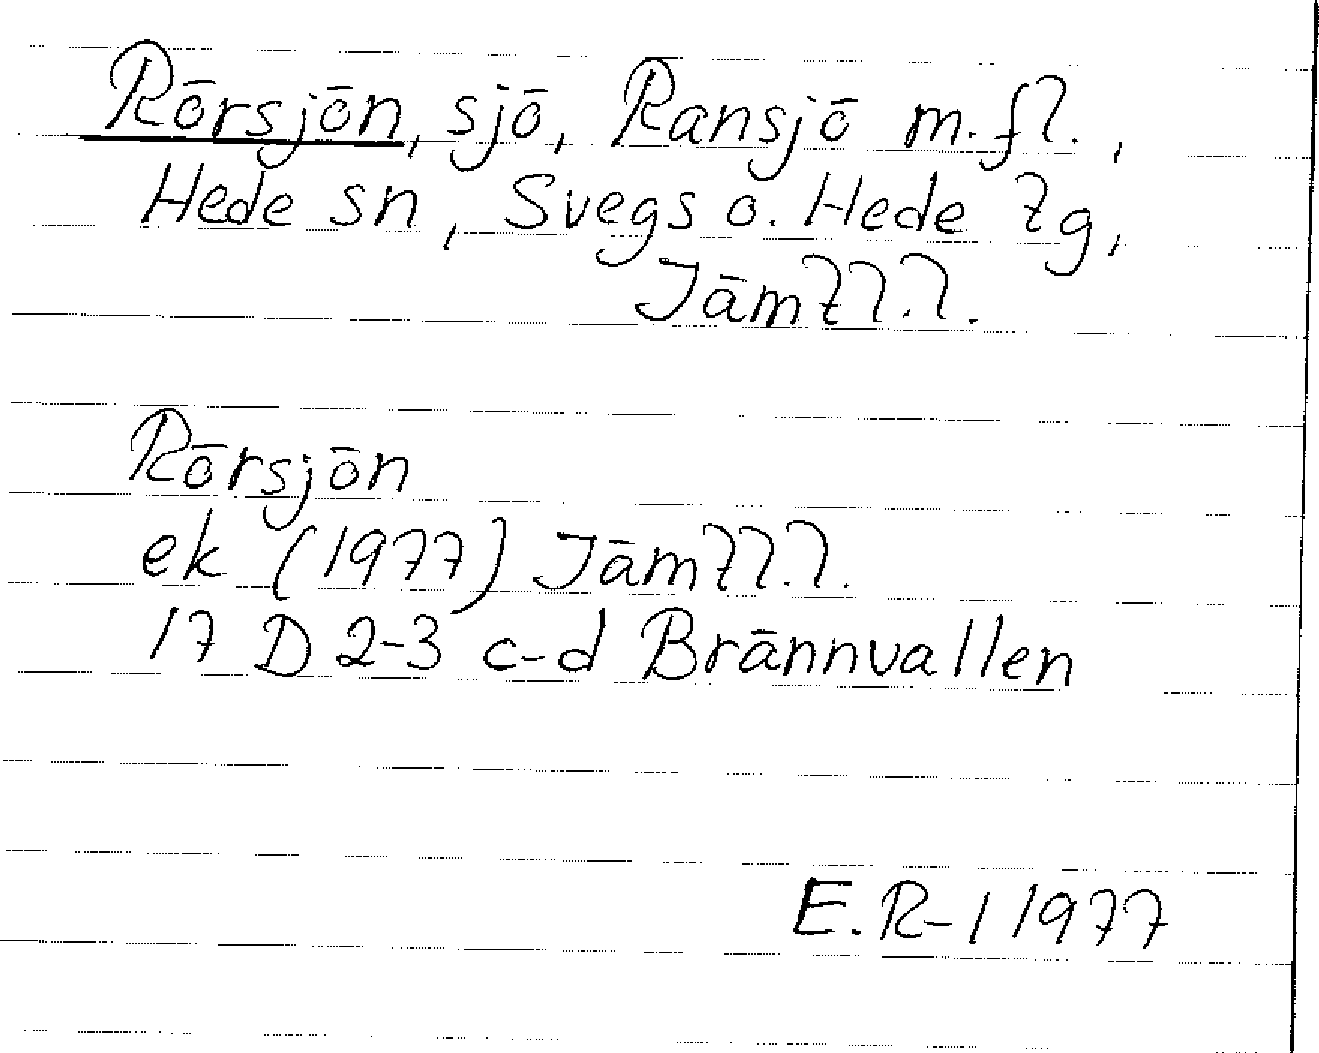 Rörsjön, sjö, Ransjö m.fl.,
Hede sn, Svegs o. Hede tg,
Jämtl.l.
Rörsjön
ek (1977) Jämtl.l.
17 D 2-3 c-d Brännvallen
E.R-l 1977